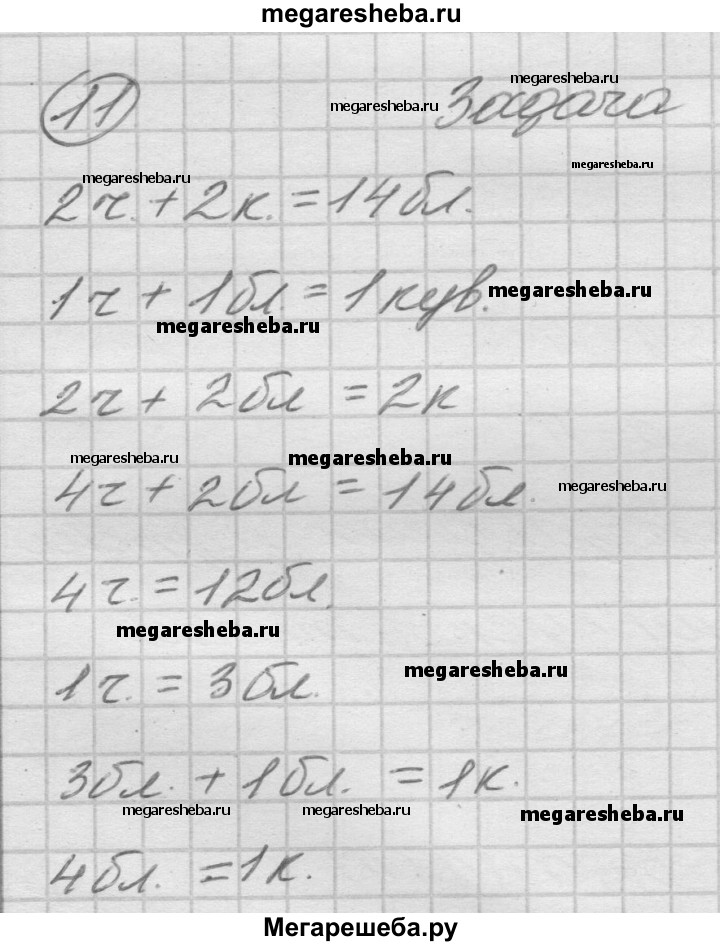 megaresheba.ru
megaresheba.ru
11 megaresheba.ru Задача
megaresheba.ru
megaresheba.ru
2ч. + 2к. = 14бл.
1ч + 1бл = 1кув. megaresheba.ru
megaresheba.ru
2ч + 2бл = 2к
megaresheba.ru megaresheba.ru
4ч + 2бл = 14бл. megaresheba.ru
4ч. = 12бл.
megaresheba.ru
1ч. = 3бл. megaresheba.ru
3бл. + 1бл. = 1к.
megaresheba.ru megaresheba.ru megaresheba.ru
4бл. = 1к.
Мегарешеба.ру